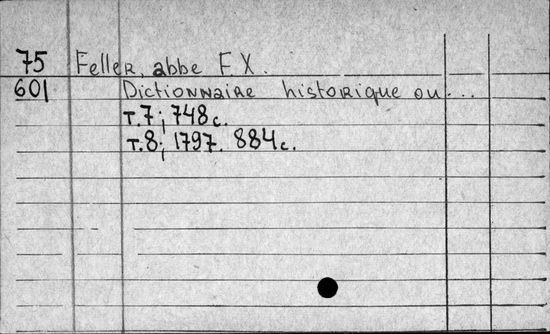 75 Feller, abbe F. X.
601 Dictionnaire historique ou...
т.7; 748 c.
т.8; 1797. 884 c.